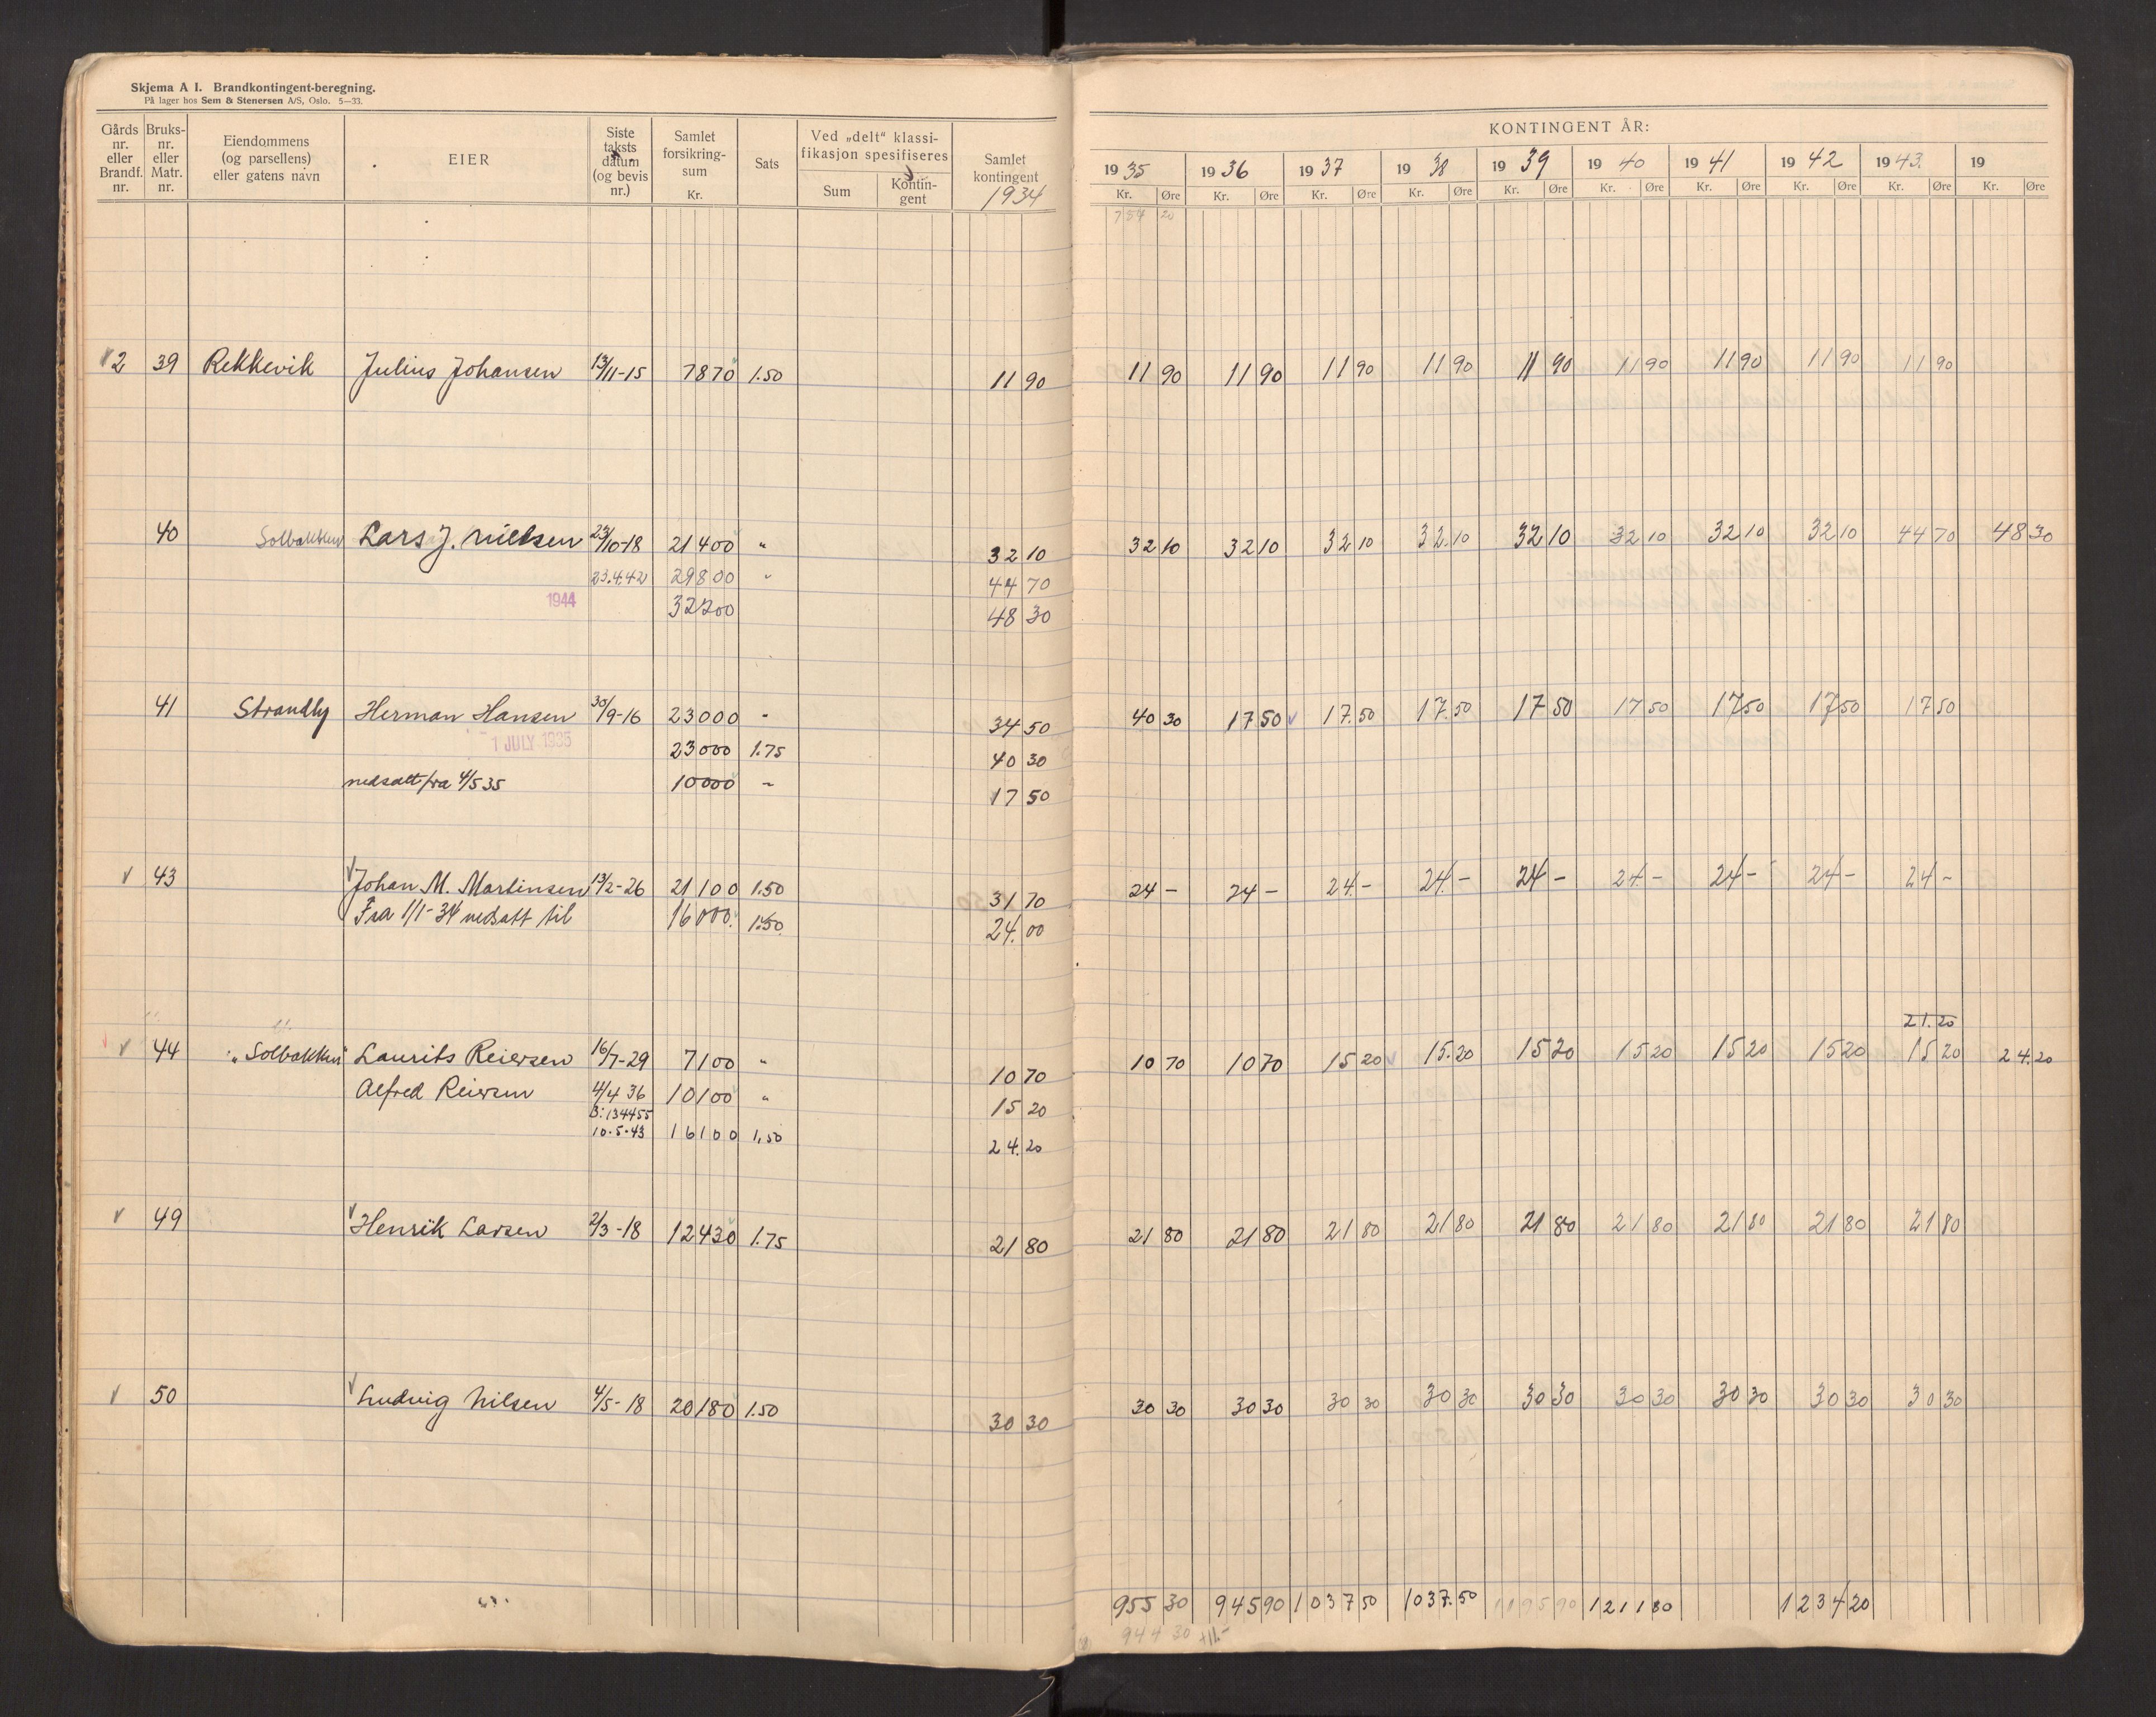 Skjema A I. Brandkontingent-beregning.
På lager hos Sem & Stenersen A/S, Oslo. 5—33.
Gårds nr. eller Brandf. nr.
Bruks- nr. eller Matr. nr.
Eiendommens (og parsellens) eller gatens navn
EIER
Siste taksts datum (og bevis nr.)
Samlet forsikring- sum Kr.
Sats
Ved „delt" klassi- fikasjon spesifiseres
Sum
Kontin- gent
Samlet kontingent 1934
KONTINGENT ÅR:
1935 1936 1937 1938 1939 1940 1941 1942 1943. 19
Kr. Øre Kr. Øre Kr. Øre Kr. Øre Kr. Øre Kr. Øre Kr. Øre Kr. Øre Kr. Øre Kr. Øre
754 20
2 39 Rekkevik Julius Johansen 13/11-15 7870 1.50 11 90 11 90 11 90 11 90 11 90 11 90 11 90 11 90 11 90 11 90
40 Solbakken Lars J. Nielsen 23/10-18 21400 " 32 10 32 10 32 10 32 10 32.10 32 10 32 10 32 10 32 10 44 70 48 30
23.4.42 29800 " 44 70
1944 32200 48 30
41 Strandly Herman Hansen 30/9-16 23000 " 34 50 40 30 17 50 17.50 17.50 17 50 17 50 17 50 17 50 17 50
1 JULY 1935 23000 1.75 40 30
nedsatt fra 4/5 35 10000 " 17 50
43 Johan M. Martinsen 13/2-26 21100 1.50 31 70 24 - 24 - 24.- 24.- 24 - 24.- 24 - 24 - 24 -
Fra 1/1-34 nedsatt til 16000. 1.50. 24.00
21.20
44 „Solbakken" Laurits Reiersen 16/7-29 7100 " 10 70 10 70 10 70 15 20 15.20 15 20 15 20 15 20 15 20 15 20 24.20
Alfred Reiersen 4/4 36 10100 " 15 20
B: 134455
10.5.43 16100 1.50 24.20
49 Henrik Larsen 2/3-18 12430 1.75 21 80 21 80 21 80 21 80 21 80 21 80 21 80 21 80 21 80 21 80
50 Ludvig Nilsen 4/5-18 20180 1.50 30 30 30 30 30 30 30 30 30 30 30 30 30 30 30 30 30 30 30 30
955 30 945 90 1037 50 1037.50 1195 90 1211 80 1234 20
944 30 +11-